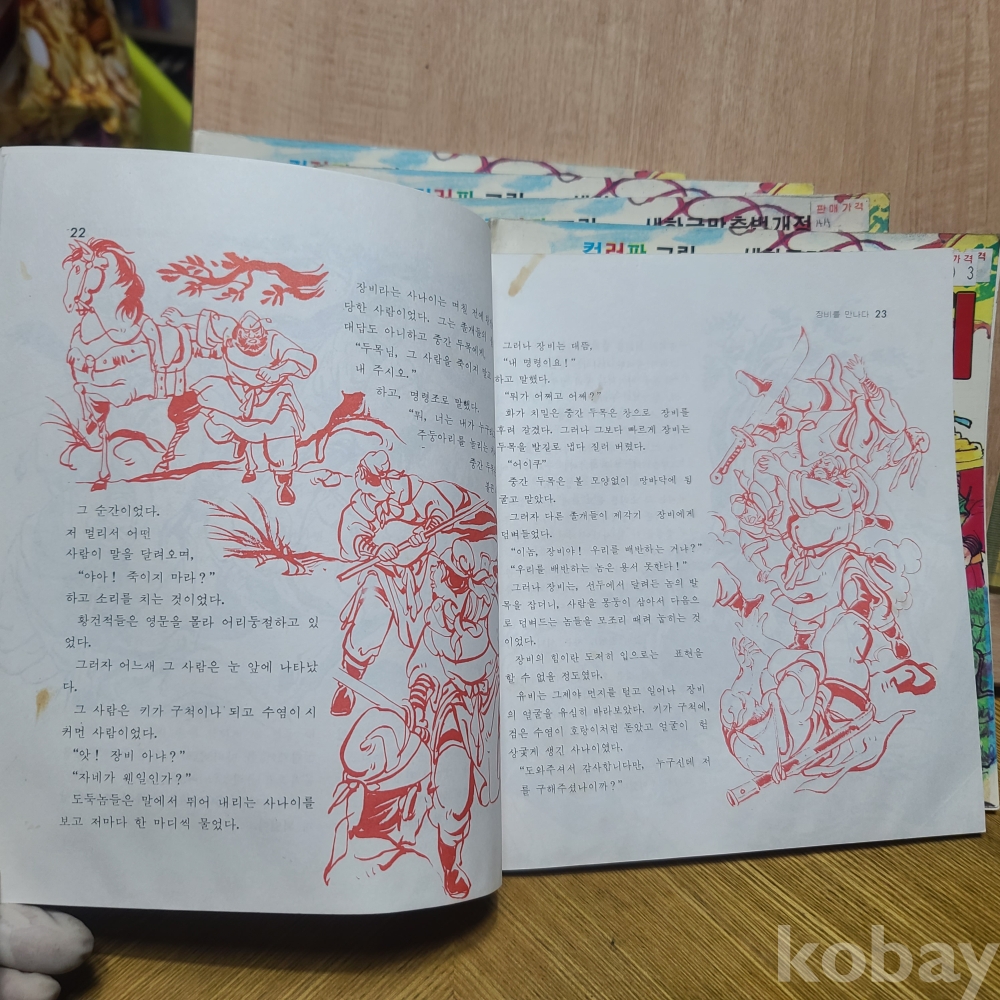 컬러판 그림
새한글맞춤법개정
판매가격
컬러판 그림
가격
3
22
장비라는 사나이는 며칠 전에
당한 사람이었다. 그는 졸개들의
대답도 아니하고 중간 두목에게,
"두목님, 그 사람을 죽이지 말고
내 주시오."
하고, 명령조로 말했다.
"뭐, 너는 내가 누구
주둥아리를 놀리는
중간 두
그 순간이었다.
저 멀리서 어떤
사람이 말을 달려오며,
"야아! 죽이지 마라?"
하고 소리를 치는 것이었다.
황건적들은 영문을 몰라 어리둥절하고 있
었다.
그러자 어느새 그 사람은 눈 앞에 나타났
다.
그 사람은 키가 구척이나 되고 수염이 시
커먼 사람이었다.
"앗! 장비 아냐?"
"자네가 웬일인가?"
도둑놈들은 말에서 뛰어 내리는 사나이를
보고 저마다 한 마디씩 물었다.
장비를 만나다 23
그러나 장비는 대뜸,
"내 명령이요!"
하고 말했다.
"뭐가 어쩌고 어째?"
화가 치밀은 중간 두목은 창으로 장비를
후려 갈겼다. 그러나 그보다 빠르게 장비는
두목을 발길로 냅다 질러 버렸다.
"어이쿠"
중간 두목은 볼 모양없이 땅바닥에 뒹
굴고 말았다.
그러자 다른 졸개들이 제각기 장비에게
덤벼들었다.
"이놈, 장비야! 우리를 배반하는 거냐?"
"우리를 배반하는 놈은 용서 못한다!"
그러나 장비는, 선두에서 달려든 놈의 발
목을 잡더니, 사람을 몽둥이 삼아서 다음으
로 덤벼드는 놈들을 모조리 때려 눕히는 것
이었다.
장비의 힘이란 도저히 입으로는 표현을
할 수 없을 정도였다.
유비는 그제야 먼지를 털고 일어나 장비
의 얼굴을 유심히 바라보았다. 키가 구척에,
검은 수염이 호랑이처럼 돋았고 얼굴이 험
상궂게 생긴 사나이였다.
"도와주셔서 감사합니다만, 누구신데 저
를 구해주셨나이까?"
kobay